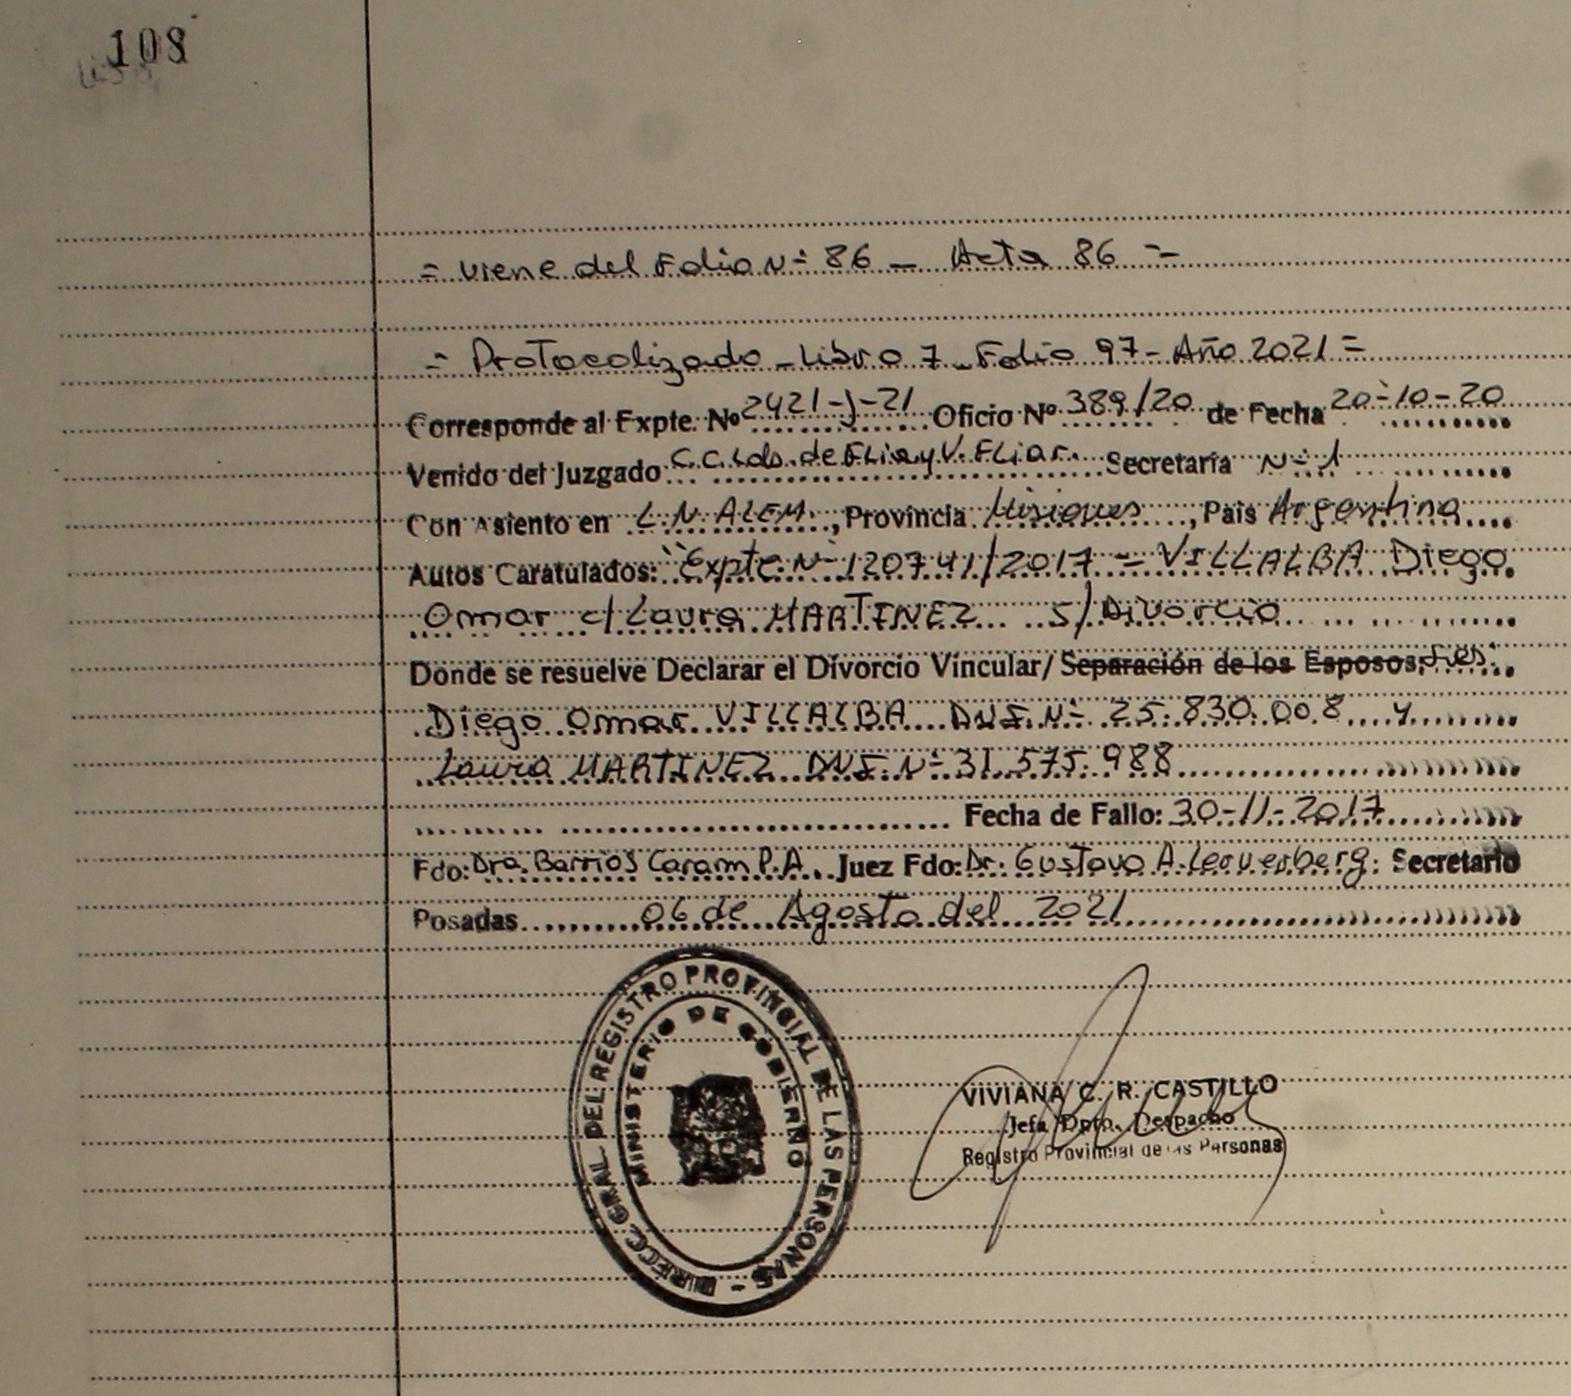 108
= viene del Folio Nº 86 - Acta 86 =
= Protocolizado - Libro 7 - Folio 97 - Año 2021 =
Corresponde al Expte. Nº 2421-J-21 Oficio Nº 389/20 de Fecha 20-10-20
Venido del Juzgado C.C. Lab. de Flia y V. Fliar. Secretaría Nº 1
Con Asiento en L.N. ALEM, Provincia Misiones, País Argentina
Autos Caratulados: "Expte Nº 120741/2017 - VILLALBA Diego
Omar c/ Laura MARTINEZ s/ Divorcio
Donde se resuelve Declarar el Divorcio Vincular/ Separación de los Esposos;
Diego Omar VILLALBA DNI. Nº 25.830.008 y
Laura MARTINEZ DNI. Nº 31.575.988
Fecha de Fallo: 30-11-2017
Fdo: Dra. Barrios Caram P.A. Juez Fdo: Dr. Gustavo A. Secretario
Posadas 06 de Agosto del 2021
DIRECC. GRAL. DEL REGISTRO PROVINCIAL DE LAS PERSONAS -
MINISTERIO DE GOBIERNO
VIVIANA C. R. CASTILLO
Jefa Dpto. Despacho
Registro Provincial de las Personas